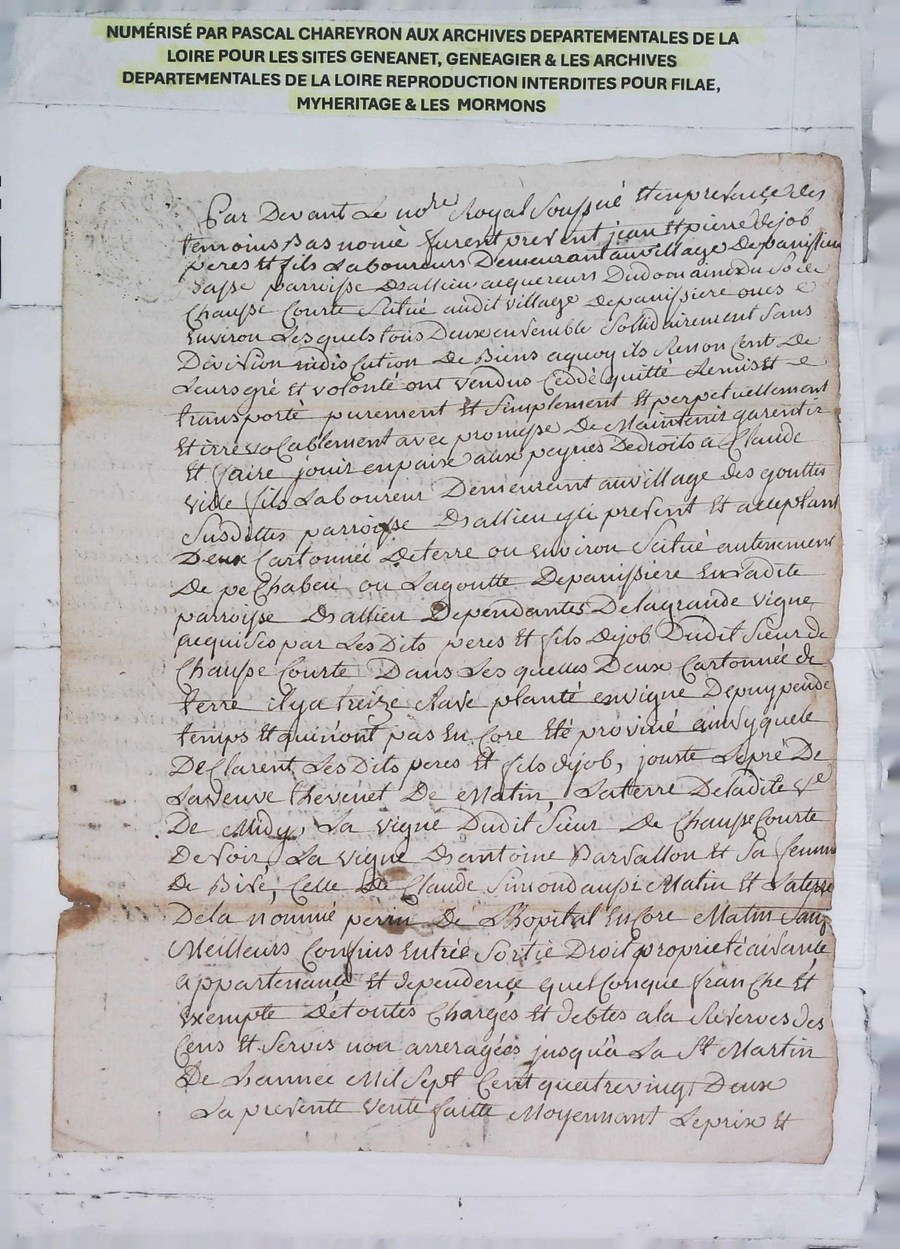 NUMÉRISÉ PAR PASCAL CHAREYRON AUX ARCHIVES DEPARTEMENTALES DE LA
LOIRE POUR LES SITES GENEANET, GENEAGIER & LES ARCHIVES
DEPARTEMENTALES DE LA LOIRE REPRODUCTION INTERDITES POUR FILAE,
MYHERITAGE & LES MORMONS
Par Devant Le nore Royal Soussné Et en presence des
temoins Bas nomé furent present jean Et pierre dejob
peres Et fils Laboureurs Demeurant au village De panissiere
parroisse Dsallieu acquereurs Du Sr de
Chausse Courte Scitué audit village De panissiere oues
Environ Lesquels tous Deux ensemble Sollidairement Sans
Division ny discation De Biens a quoy ils Renoncent De
Leurs gré Et volonté ont vendus Ceddé quitté Remis Et
transporté purement Et Simplement Et perpetuellement
Et irrevocablement avec promesse De Maintenir garentir
Et faire jouir en paix aux peynes De droits a Claude
fils Laboureur Demeurant au village des gouttes
Susdittes parroisse Dsallieu yci present Et acceptant
Deux Cartonnée De terre ou Environ Scitué au tenement
De pe Chabeu ou Lagoutte De panissiere En Ladite
parroisse Dsallieu Dependantes De la grande vigne
acquises par Les Dits peres Et fils dejob Dudit Sieur de
Chausse Courte Dans Les quelles Deux Cartonnée de
terre il y a treize planté en vigne Depuy peu de
temps Et qui n'ont pas En Core Eté proviné ainsy que le
Declarent Les Dits peres Et fils dejob, jouste Le pré De
La veuve thevenet De Matin, La terre De ladite Ve
De Midy, La vigne Dudit Sieur De Chausse Courte
De Soir, La vigne Dantoine Barsallon Et Sa femme
De Bize, Celle De Claude Simond aussi Matin Et La terre
De la nommé perin De Lhopital En Core Matin Sauf
Meilleurs Confins Entrée Sortie Droit proprieté aisance
appartenance Et dependence quel Conque franche Et
Exempte De toutes Charges Et debtes a la Reserves des
Cens Et Servis non arreragées jusqu'a La St Martin
De Lannée Mil Sept Cent quatre vingt Deux
La presente vente faitte Moyennant Le prix Et